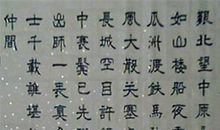 艱北望中原
如山樓船夜
瓜洲渡鐵馬
風大散關塞
長城空自許
中衰鬢已先
出師一表真
士千載誰堪
仲間